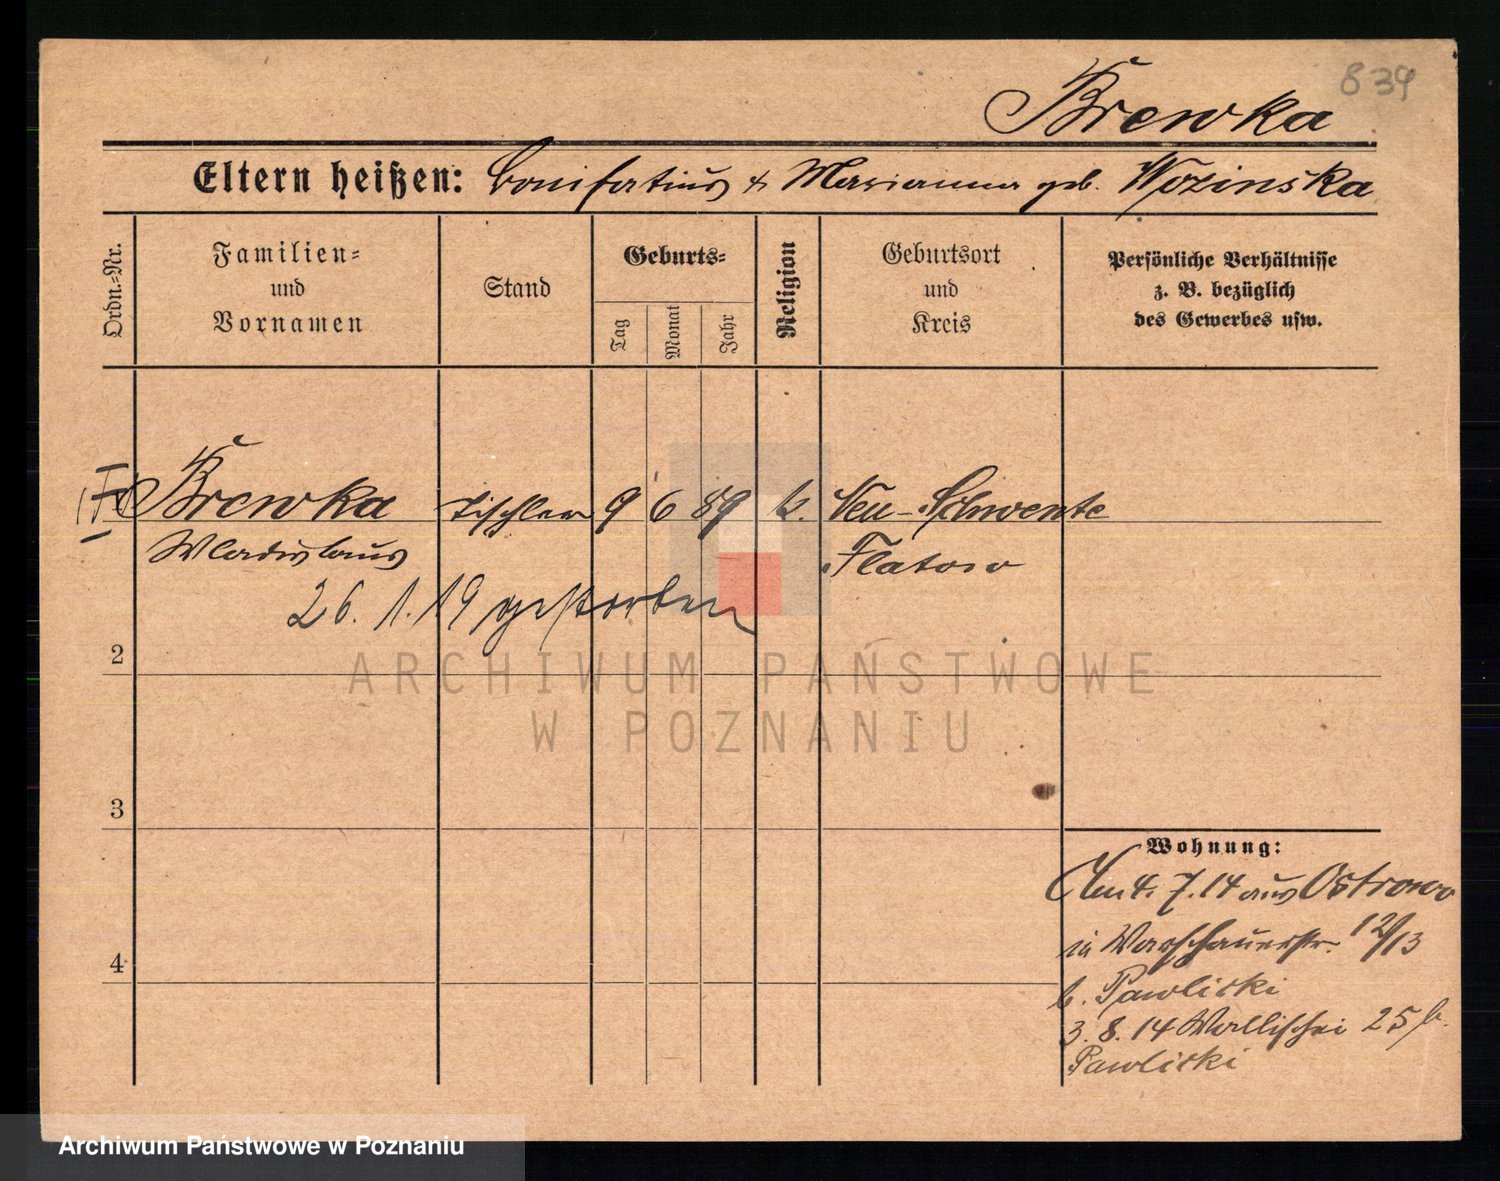 839
Brewka
Eltern heißen: Bonifatius & Marianna geb. Wozinska
Ordn.-Nr.
Familien-
und
Vornamen
Stand
Geburts-
Tag
Monat
Jahr
Religion
Geburtsort
und
Kreis
Persönliche Verhältnisse
z. B. bezüglich
des Gewerbes usw.
Brewka Tischler 9 6 89 k. Neu-Schwente
Wladislaus Flatow
26. 1. 19 gestorben
2
3
4
Wohnung:
Am 4. 7. 14 aus Ostrowo
in Warschauerstr. 12/13
b. Pawliski
3. 8. 14 Wallischei 25 b.
Pawliski
ARCHIWUM PAŃSTWOWE
W POZNANIU
Archiwum Państwowe w Poznaniu